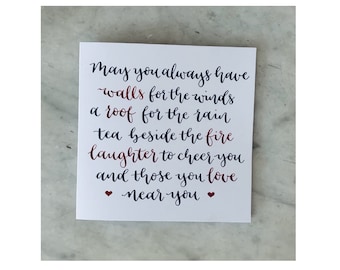 May you always have
walls for the winds
a roof for the rain
tea beside the fire
laughter to cheer you
and those you love
near you